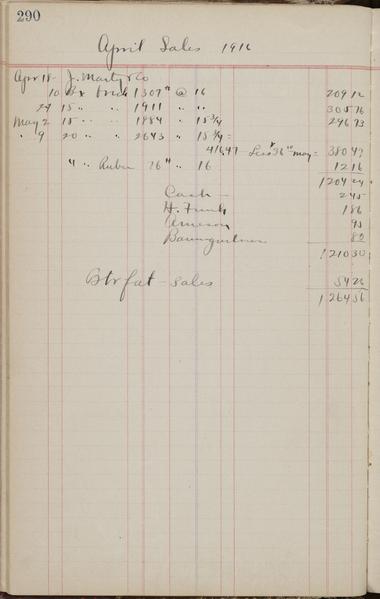 290
April Sales 1916
Apr 18 - J. Marty & Co
10 Bx Brick 1307# @ 16 209 12
24 15 " " 1911 " " 305 76
May 2 15 " " 1884 " 15 3/4 296 73
" 9 20 " " 2643 " 15 3/4 =
416,47 - Less 36 in May = 380 47
4 " 76# " 16 12 16
1204 24
Cash - 2 45
H. Funk 1 86
Ameson 95
Baumgartner 80
1210 30
Btrfat - Sales 54 26
1264 56